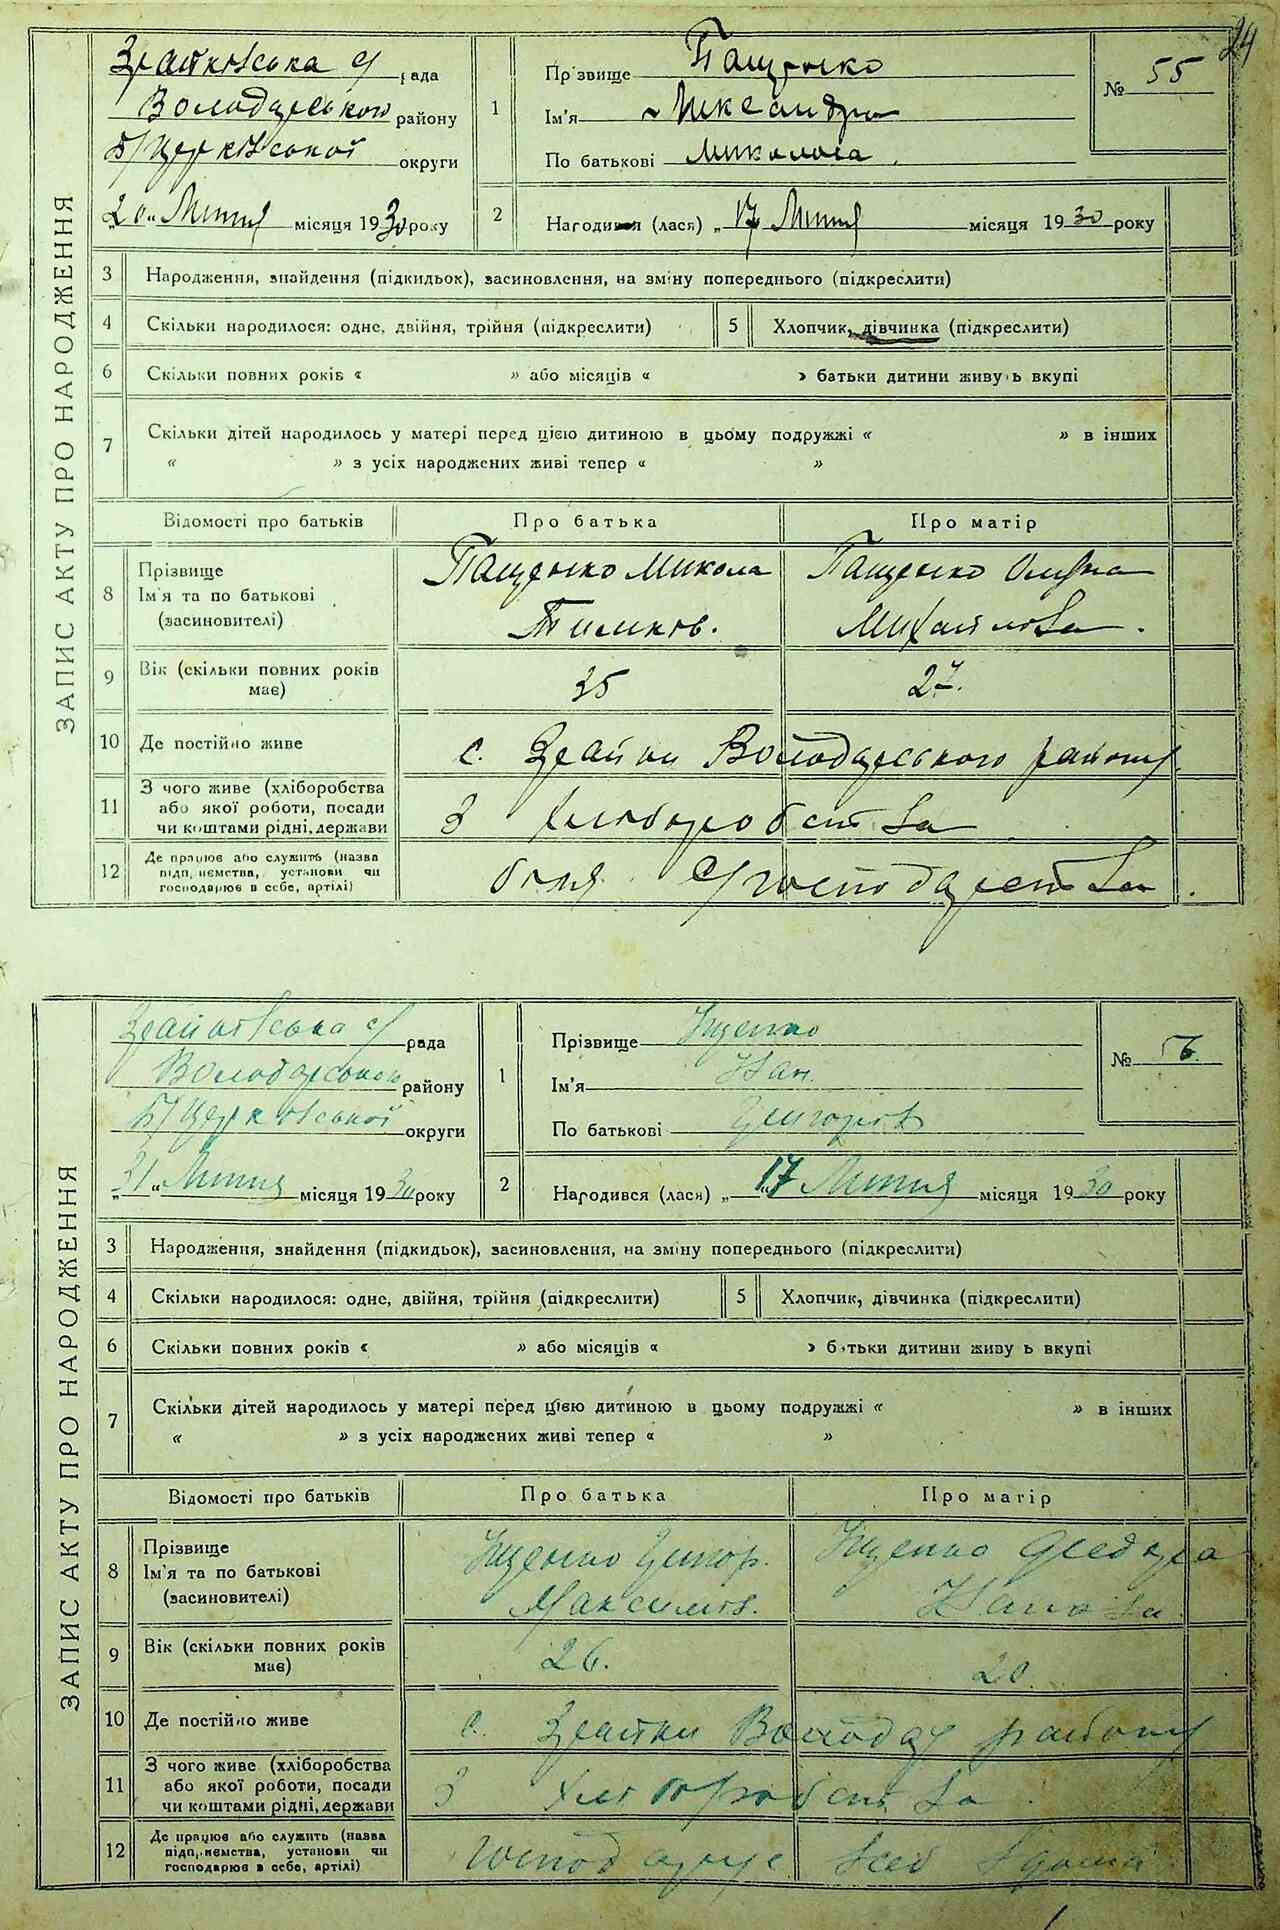 24
ЗАПИС АКТУ ПРО НАРОДЖЕННЯ
с/ рада
Володарського району
Б/Церківської округи
"20" Липня місяця 1930 року
1
Прізвище Пащенко
Ім'я
По батькові Микола
№ 55
2
Народився (лася) „17 Липня місяця 1930 року
3 Народження, знайдення (підкидьок), засиновлення, на зміну попереднього (підкреслити)
4 Скільки народилося: одне, двійня, трійня (підкреслити) 5 Хлопчик, дівчинка (підкреслити)
6 Скільки повних років « » або місяців « » батьки дитини живуть вкупі
7 Скільки дітей народилось у матері перед цією дитиною в цьому подружжі « » в інших
« » з усіх народжених живі тепер « »
Відомості про батьків Про батька Про матір
8 Прізвище
Ім'я та по батькові
(засновителі)
Пащенко Микола
Пащенко
9 Вік (скільки повних років
має)
35 27.
10 Де постійно живе с. Володарського району
11 З чого живе (хліборобства
або якої роботи, посади
чи коштами рідні, держави
З хлiборобства
12 Де працює або служить (назва
підприємства, установи чи
господарює в себе, артілі)
біля с/господарства.
ЗАПИС АКТУ ПРО НАРОДЖЕННЯ
с/ рада
Володарського району
Б/Церківської округи
„31" Липня місяця 1930 року
1
Прізвище Іщенко
Ім'я Іван.
По батькові Григорів
№ 56.
2
Народився (лася) „17 Липня місяця 1930 року
3 Народження, знайдення (підкидьок), засиновлення, на зміну попереднього (підкреслити)
4 Скільки народилося: одне, двійня, трійня (підкреслити) 5 Хлопчик, дівчинка (підкреслити)
6 Скільки повних років « » або місяців « » батьки дитини живуть вкупі
7 Скільки дітей народилось у матері перед цією дитиною в цьому подружжі « » в інших
« » з усіх народжених живі тепер « »
Відомості про батьків Про батька Про матір
8 Прізвище
Ім'я та по батькові
(засиновителі)
Іщенко Григор.
Максимів.
Іщенко
Іванова
9 Вік (скільки повних років
має)
26. 20.
10 Де постійно живе с. району
11 З чого живе (хліборобства
або якої роботи, посади
чи коштами рідні, держави
З хліборобства.
12 Де працює або служить (назва
підприємства, установи чи
господарює в себе, артілі)
господарює